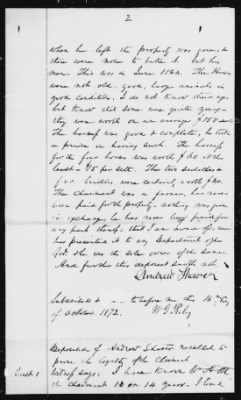 2
when he left the property was gone, &
there were men to take it but his
men. This was in June 1864. The Horses
were not old, good, large animals in
good condition, I do not know their age
but know that some were quite young -
they were worth on an average $150 each
The harness was good & complete, he took
a pride in having such. The harness
for the four horses was worth $60 at the
least - $15 per sett. The two saddles &
four bridles were certainly worth $
The Claimant was in person, has never
been paid for the property - nothing was given
in exchange, he has never been paid for
any part thereof - that I am aware of, nor
has presented it to any Department of the
Govt. She was the sole owner of the same
And further this deponent saith not
Andrew Shaver
Subscribed & before me this 14th day
of October 1872.
Deposition of Andrew Shaver recalled to
prove the loyalty of the Claimant
says: I have known
the claimant 12 or 14 years - I think